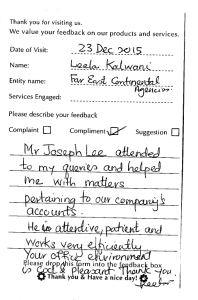 Thank you for visiting us.
We value your feedback on our products and services.
Date of Visit: 23 Dec 2015
Name: Leela Kalwani
Entity name: Far East Continental
Agencies
Services Engaged:
Please describe your feedback
Complaint Compliment Suggestion
Mr Joseph Lee attended
to my queries and helped
me with matters
pertaining to our company's
accounts.
He is attentive, patient and
works very efficiently
Your office environment
Please drop this form into the feedback box
is Cool & pleasant Thank you.
Thank you & Have a nice day!
Leela